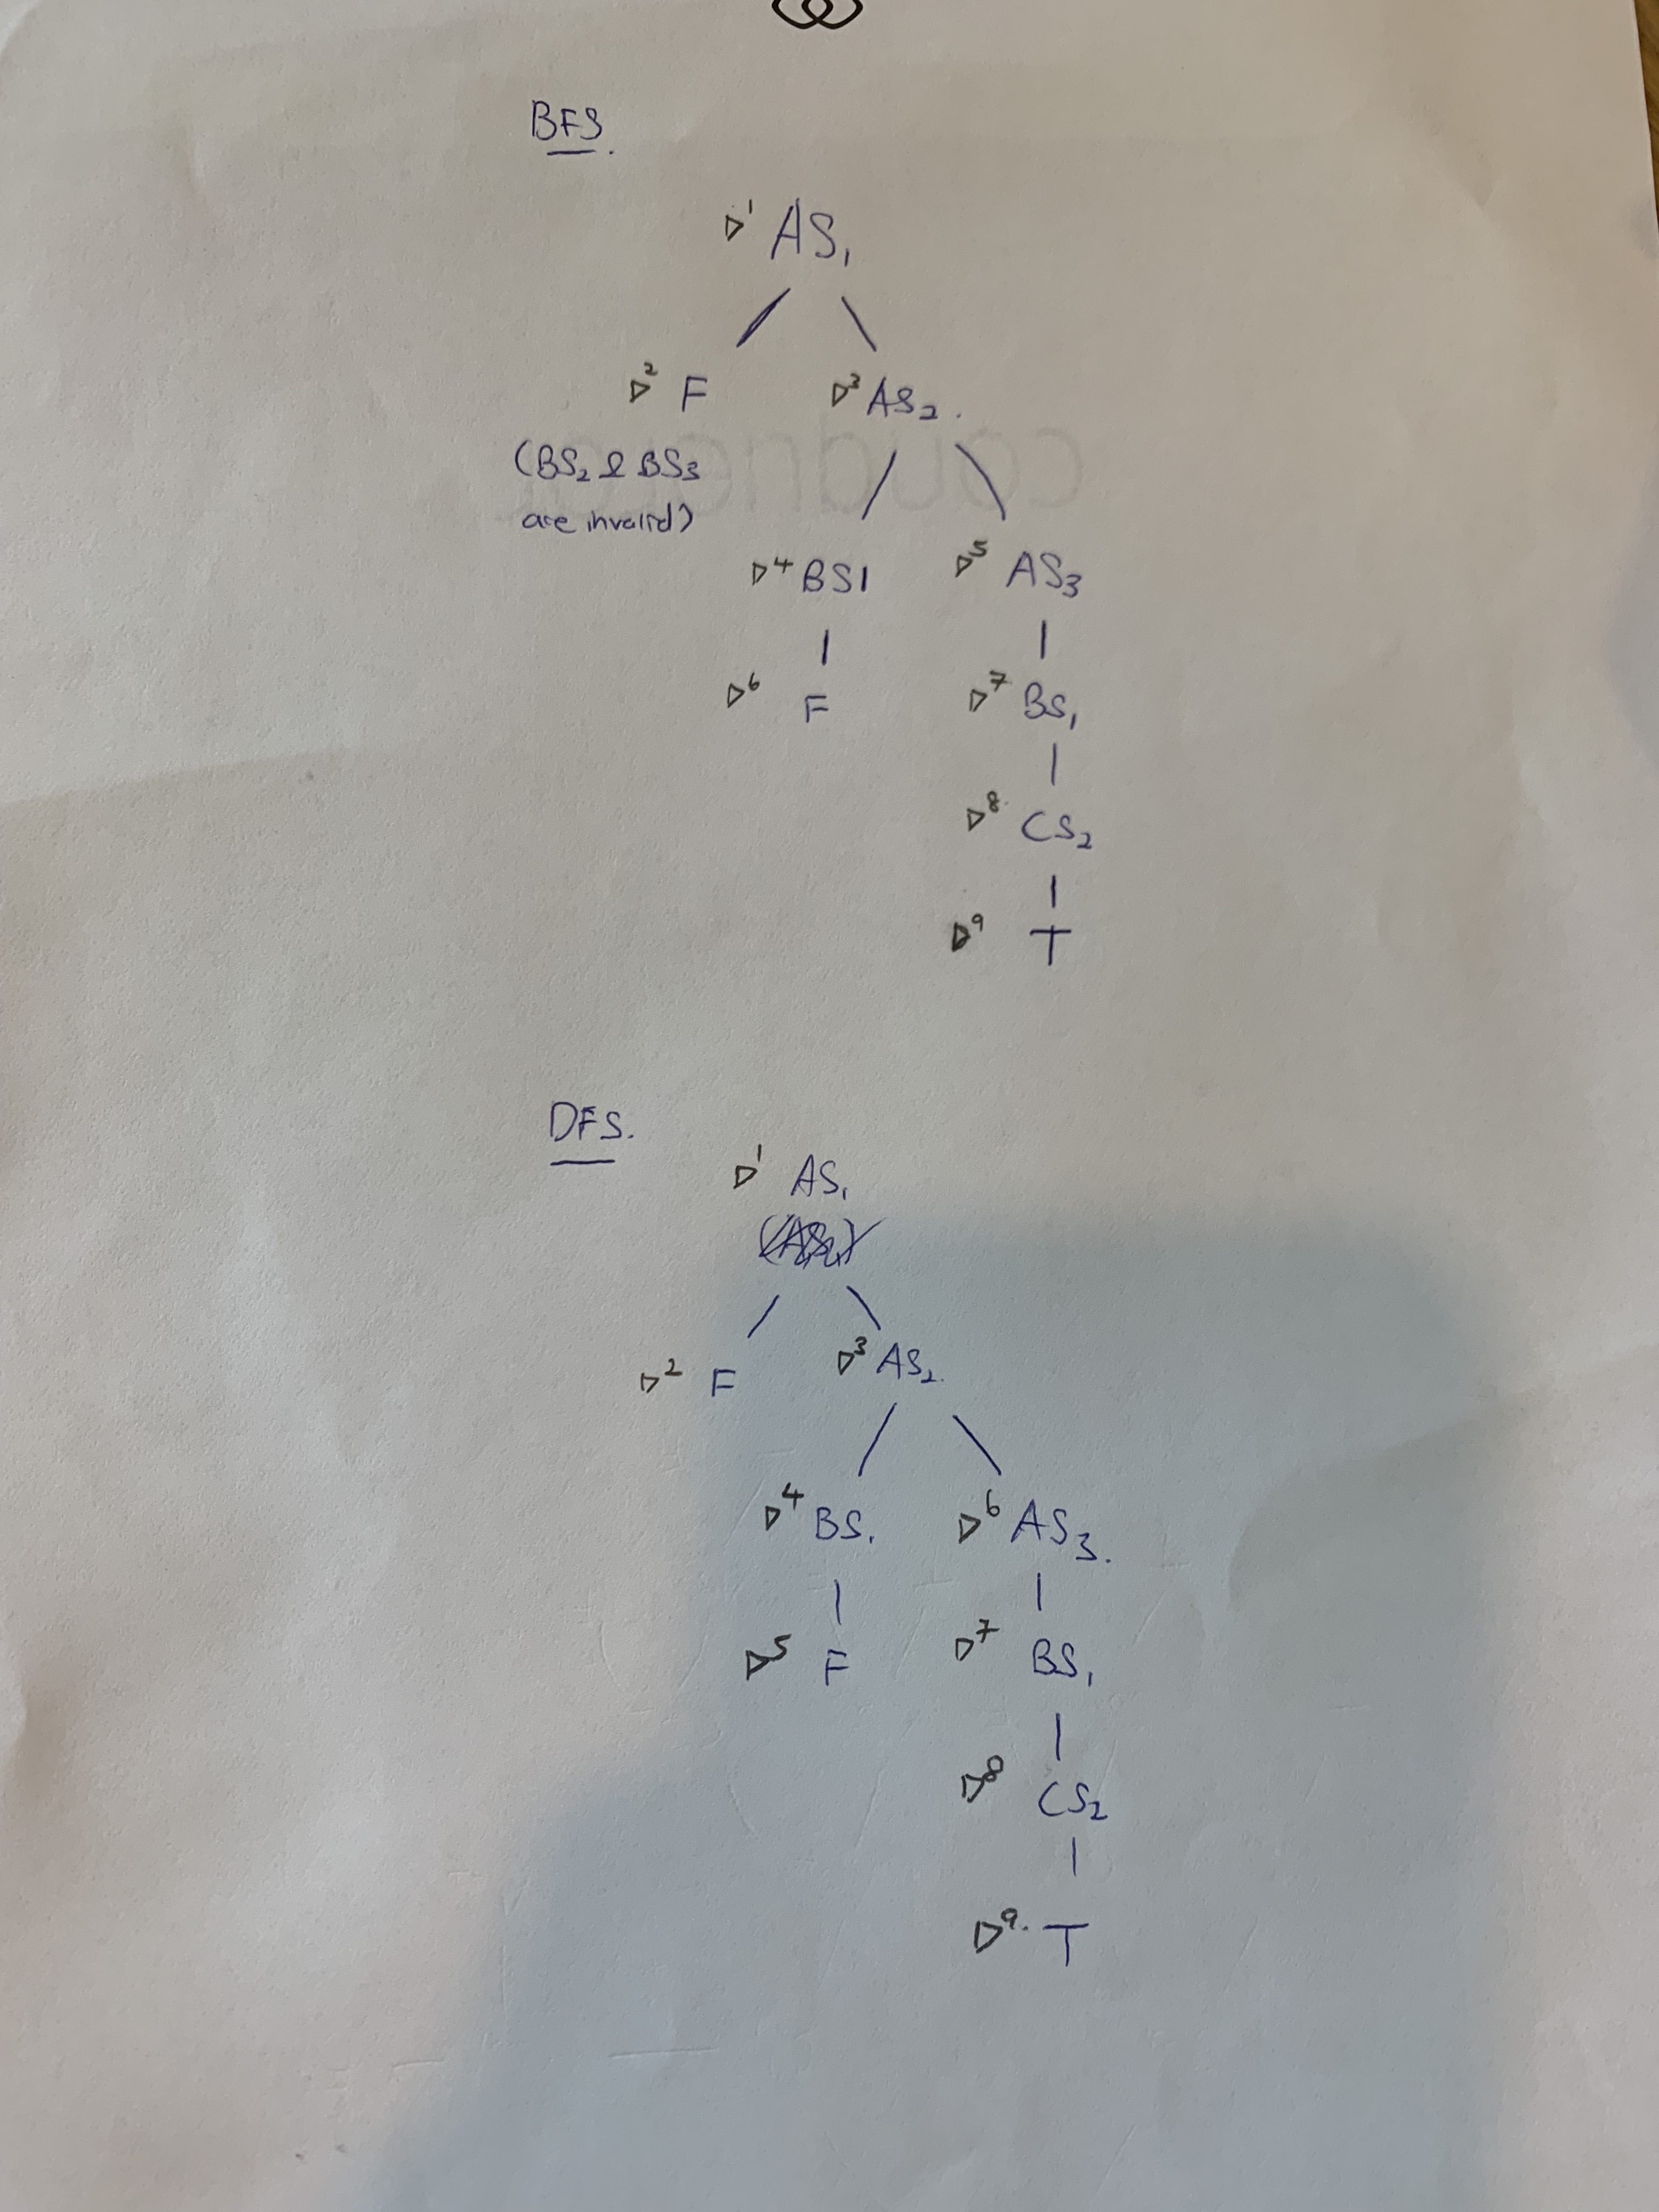 BFS.
▷¹ AS₁
▷² F ▷³ AS₂.
(BS₂ & BS₃
are invalid)
▷⁴ BS1 ▷⁵ AS₃
▷⁶ F ▷⁷ BS₁
▷⁸ CS₂
▷⁹ T
DFS.
▷¹ AS₁
▷² F ▷³ AS₂.
▷⁴ BS₁ ▷⁶ AS₃.
▷⁵ F ▷⁷ BS₁
▷⁸ CS₂
▷⁹. T